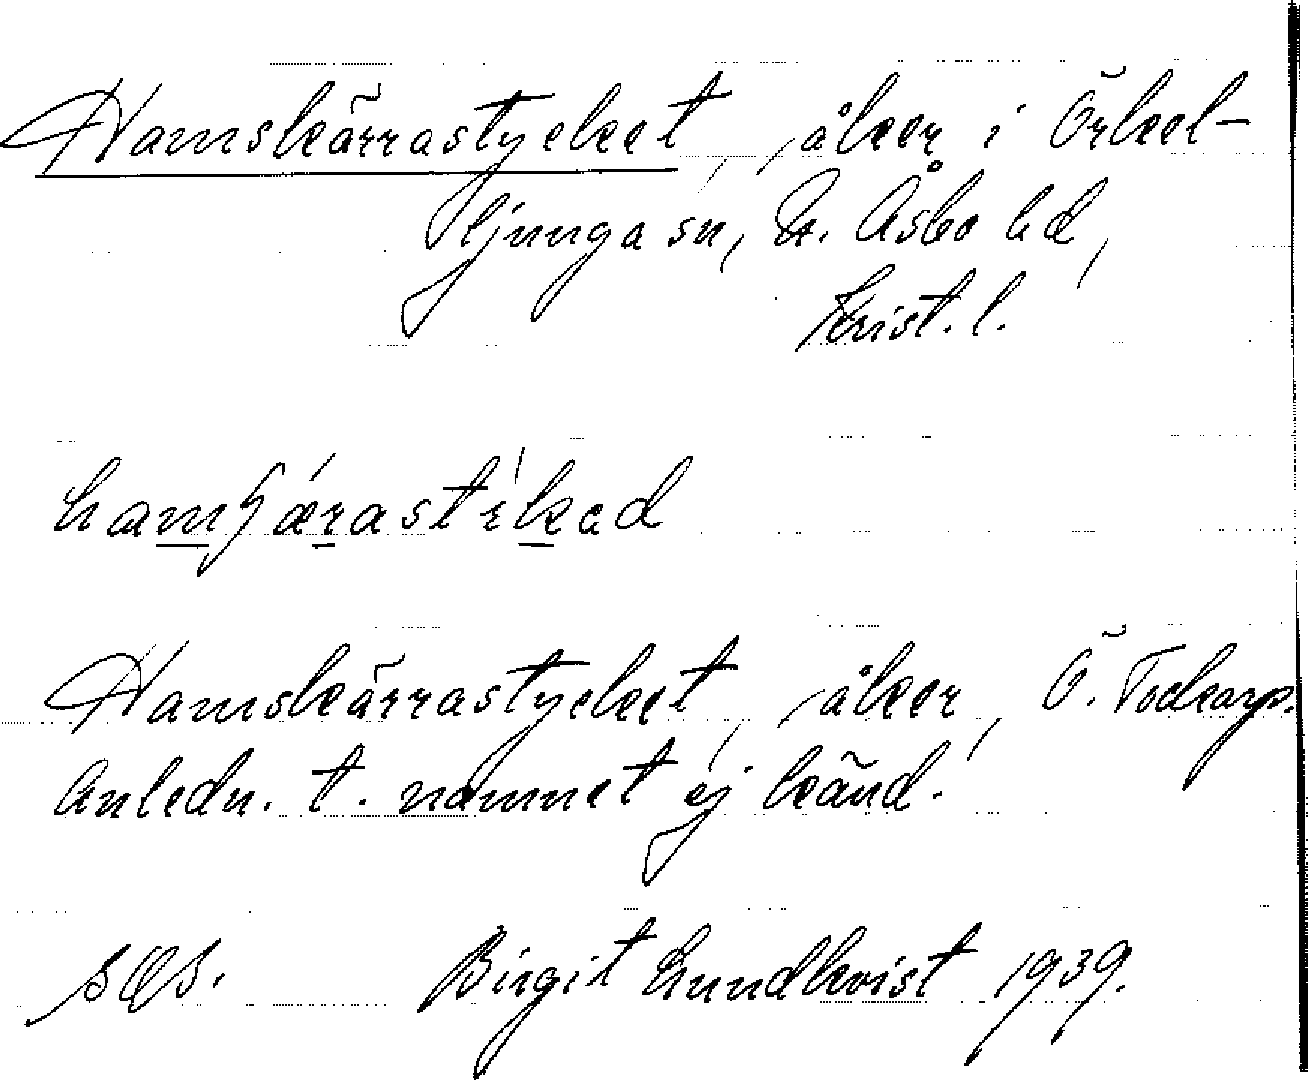 Hamskärrastycket, åker i Örkel-
ljunga sn, N. Åsbo hd,
Krist. l.
Hamskärrastycket, åker, Ö. Tockarp.
Anledn. t. namnet ej känd.
Birgit Lundkvist 1939.